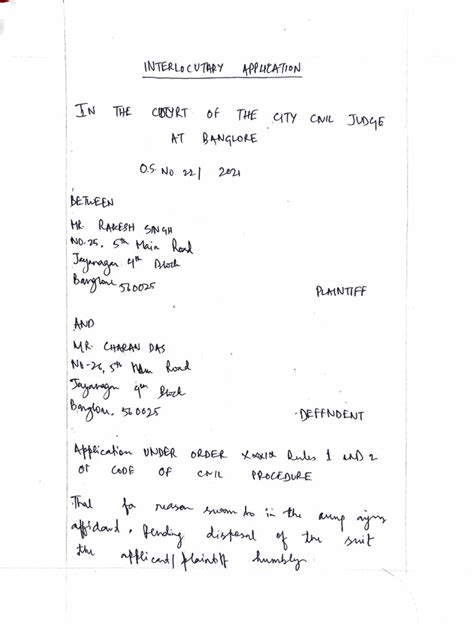 INTERLOCUTARY APPLICATION
IN THE COURT OF THE CITY CIVIL JUDGE
AT BANGLORE
O.S. No 22/ 2021
BETWEEN
MR. RAKESH SINGH
NO.25, 5th Main Road
Jayanagar 4th Block
Banglore 560025
PLAINTIFF
AND
MR. CHARAN DAS
No-26, 5th Main Road
Jayanagar 4th Block
Banglore, 560025
DEFFNDENT
Application UNDER ORDER Rules 1 AND 2
OF CODE OF CIVIL PROCEDURE
That for reason sworn to in the
affidavit, Pending disposal of the suit
the applicant/ plaintiff humbly